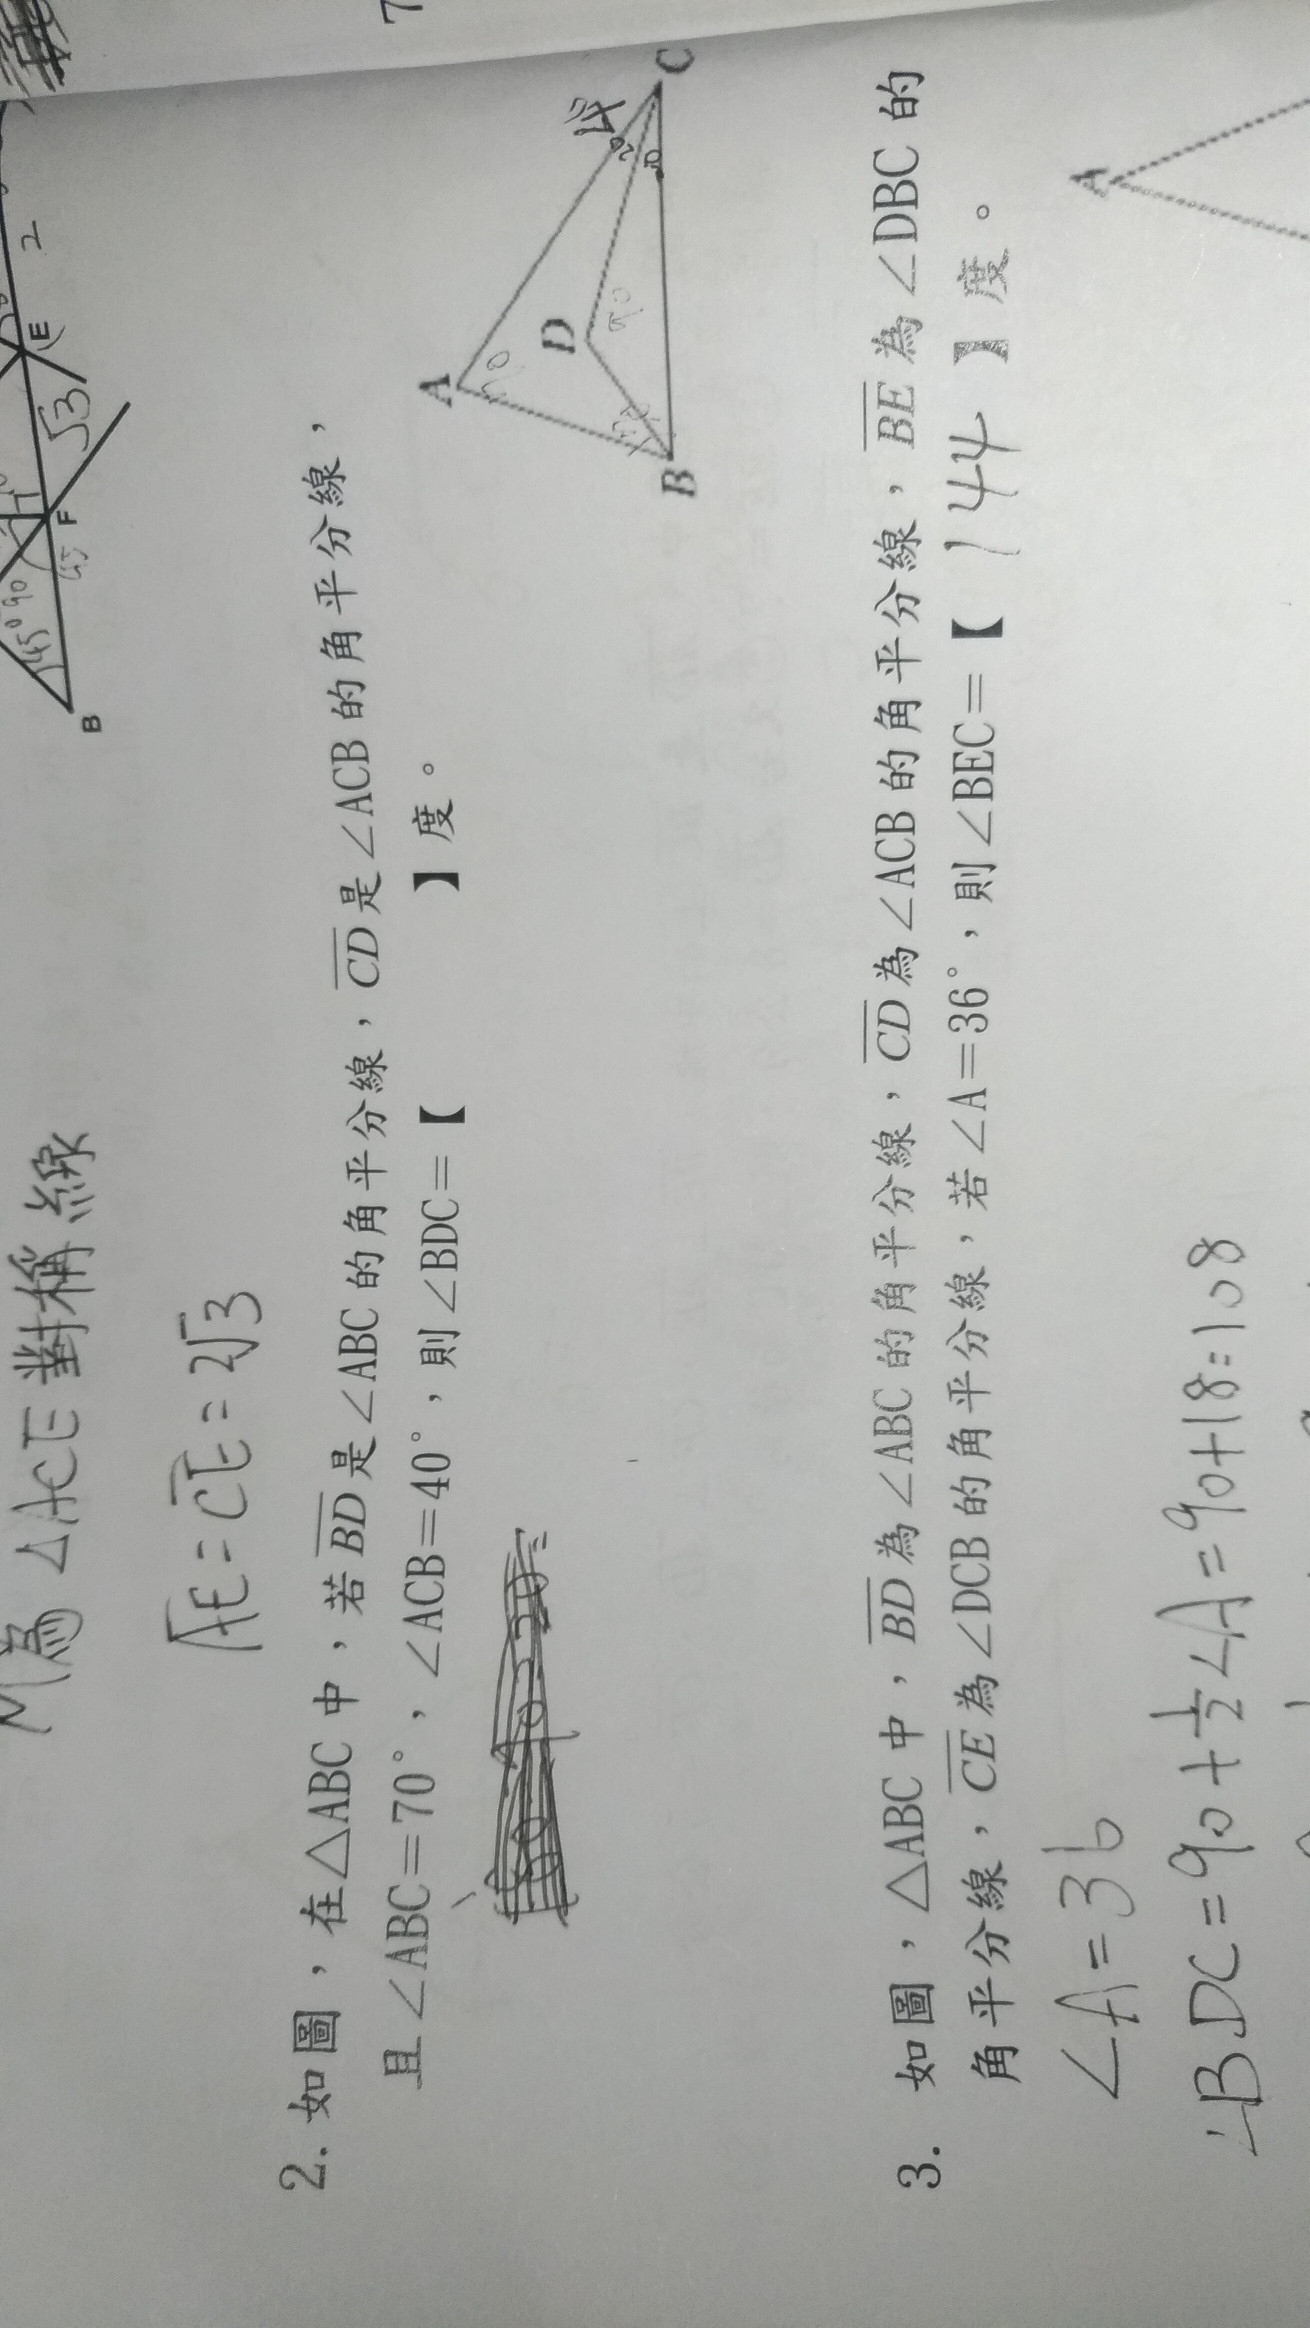 M為△ACE對稱線
AE=CE=2√3
B
45° 90
45
F
√3
E
2
2. 如圖，在△ABC中，若BD是∠ABC的角平分線，CD是∠ACB的角平分線，
且∠ABC=70°，∠ACB=40°，則∠BDC=【 】度。
A
D
B
C
70
20
3. 如圖，△ABC中，BD為∠ABC的角平分線，CD為∠ACB的角平分線，BE為∠DBC的
角平分線，CE為∠DCB的角平分線，若∠A=36°，則∠BEC=【 144 】度。
∠A=36
∠BDC=90+1/2∠A=90+18=108
A
7